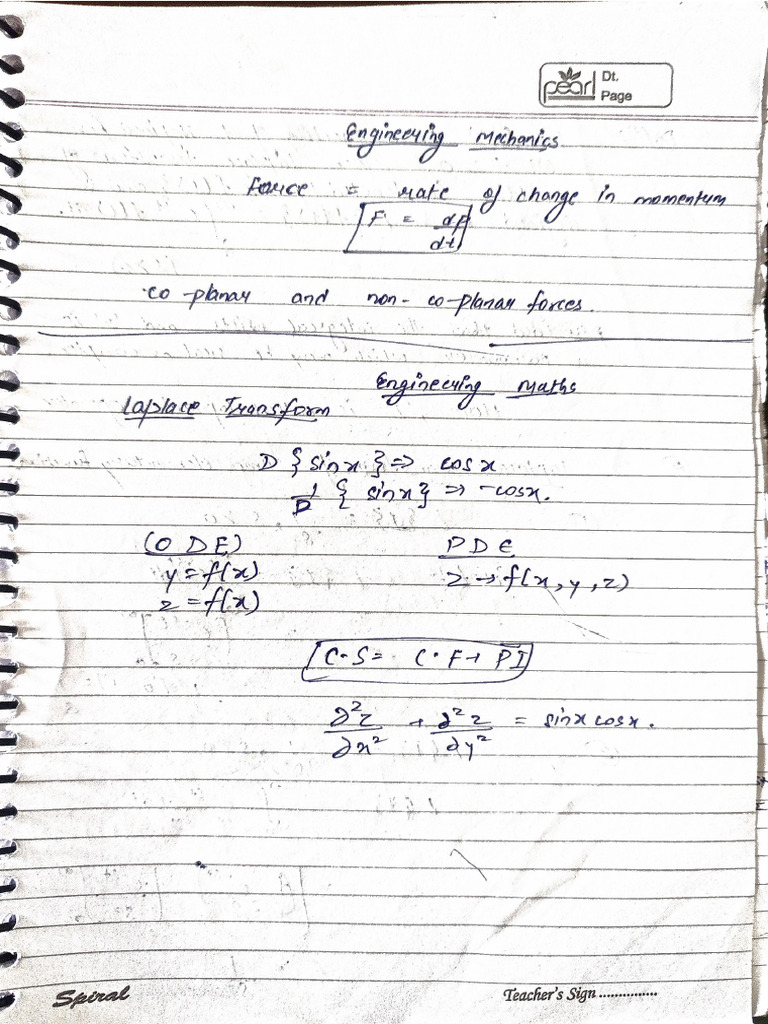 pearl Dt.
Page
Engineering Mechanics
Force = rate of change in momentum
F = dP/dt
co-planar and non-co-planar forces.
Engineering Maths
Laplace Transform
D { sinx } ⇒ cosx
1/D { sinx } ⇒ -cosx.
(ODE) PDE
y = f(x) z → f(x, y, z)
z = f(x)
C.S = C.F + PI
∂²z/∂x² + ∂²z/∂y² = sinx cosx.
Spiral Teacher's Sign ...............